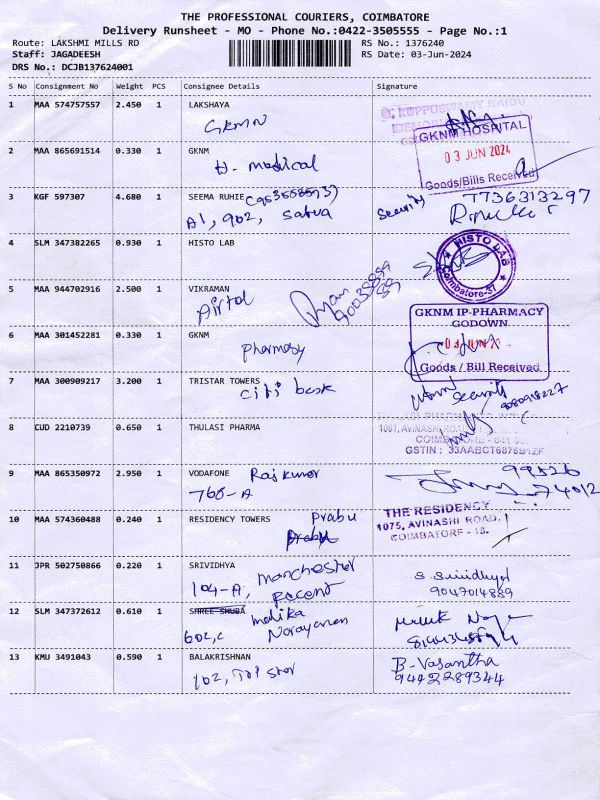 THE PROFESSIONAL COURIERS, COIMBATORE
Delivery Runsheet - MO - Phone No.:0422-3505555 - Page No.:1
Route: LAKSHMI MILLS RD RS No.: 1376240
Staff: JAGADEESH RS Date: 03-Jun-2024
DRS No.: DCJB137624001
S No Consignment No Weight PCS Consignee Details Signature
1 MAA 574757557 2.450 1 LAKSHAYA
GKMN
GKNM HOSPITAL
03 JUN 2024
Goods/Bills Received
2 MAA 865691514 0.330 1 GKNM
H. medical
3 KGF 597307 4.680 1 SEEMA RUHIE
A1, 902, Satva
Security 7736313297
4 SLM 347382265 0.930 1 HISTO LAB
HISTO LAB
Coimbatore-37
5 MAA 944702916 2.500 1 VIKRAMAN
Airtel
GKNM IP-PHARMACY
GODOWN
Goods / Bill Received
6 MAA 301452281 0.330 1 GKNM
Pharmasy
7 MAA 300909217 3.200 1 TRISTAR TOWERS
citi bank
Security
8 CUD 2210739 0.650 1 THULASI PHARMA
GSTIN : 33AABCT6876B1ZF
9 MAA 865350972 2.950 1 VODAFONE Rajkumar
766-A
99526
74012
10 MAA 574360488 0.240 1 RESIDENCY TOWERS Prabu
Prabu
THE RESIDENCY
1075, AVINASHI ROAD.
COIMBATORE - 18.
11 JPR 502750866 0.220 1 SRIVIDHYA
104-A, manchester
S. Srividhya
9047014889
12 SLM 347372612 0.610 1 SHREE SHUBA
602,c Narayanan
13 KMU 3491043 0.590 1 BALAKRISHNAN
102, Tri star
B-Vasantha
9442289344